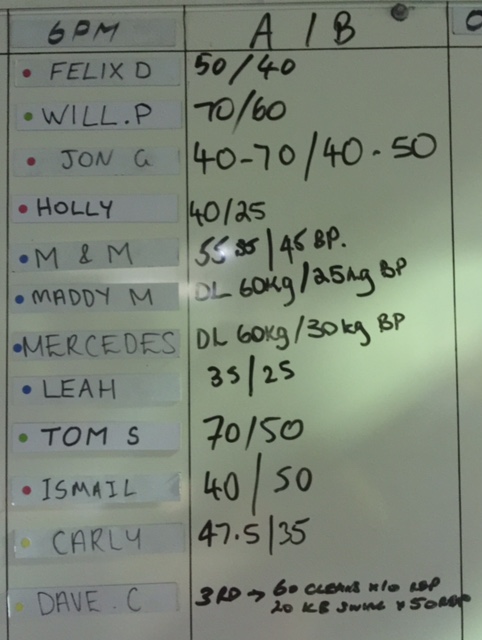 6PM A / B
FELIX D 50/40
WILL.P 70/60
JON G 40-70/40-50
HOLLY 40/25
M & M 55 35/45 BP.
MADDY M DL 60Kg/25Kg BP
MERCEDES DL 60Kg/30kg BP
LEAH 35/25
TOM S 70/50
ISMAIL 40/50
CARLY 47.5/35
DAVE.C 3RD → 60 CLEANS x10 REP
20 KB SWING x 50 REP